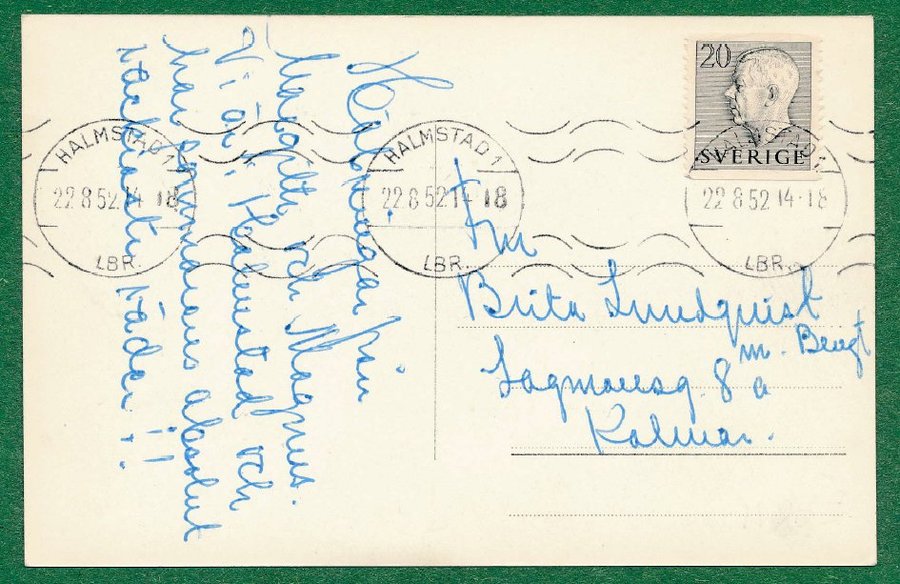 Hälsningar från
Margith och Magnus.
Vi är i Halmstad och
har sommarens absolut
vackraste väder!!
20
SVERIGE
HALMSTAD 1
22.8.52.14-18
LBR.
HALMSTAD 1
22.8.52.14-18
LBR.
HALMSTAD 1
22.8.52.14-18
LBR.
Fru
Brita Lundquist
m. Bengt
Lagmansg. 8 a
Kalmar.